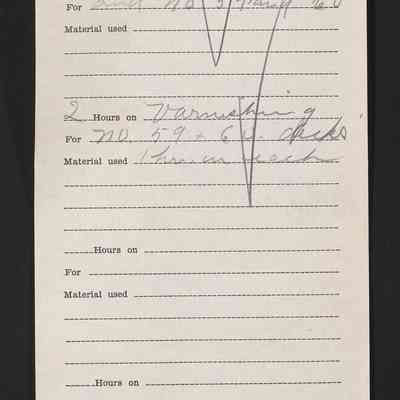 For and No 59 and 60
Material used
2 Hours on Varnishing
For No. 59 + 60 decks
Material used 1 hr. on each
Hours on
For
Material used
Hours on